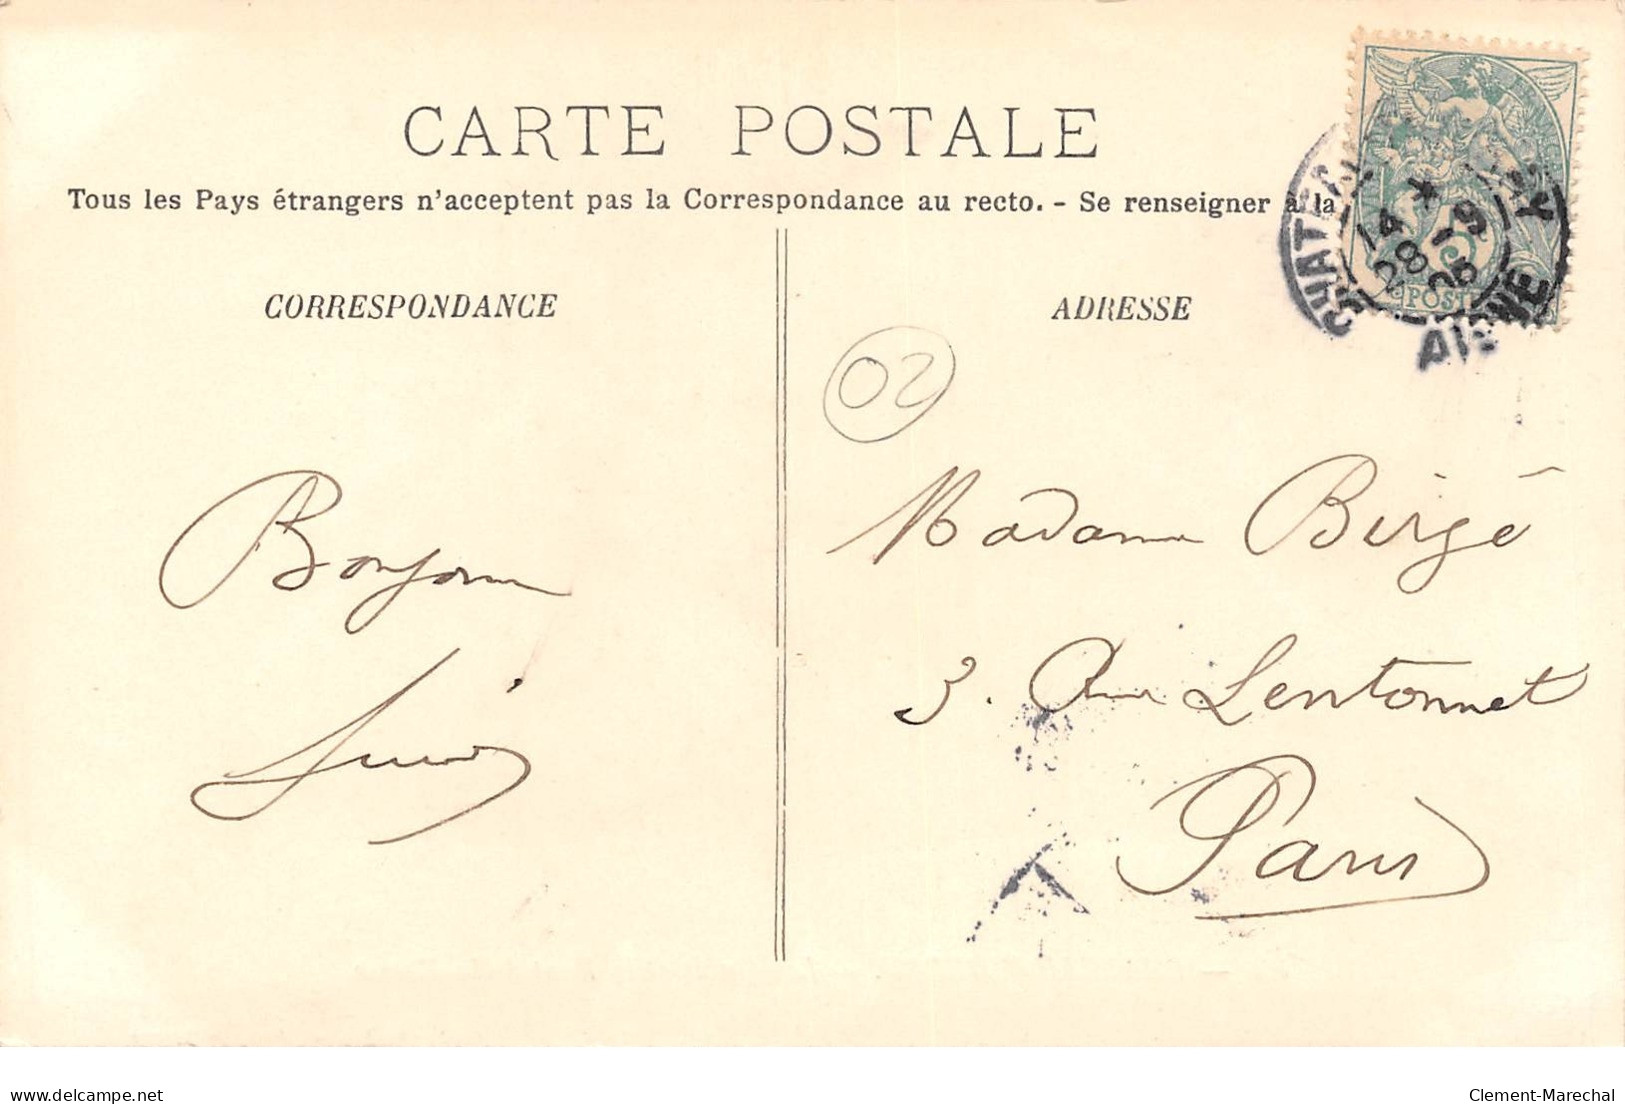 CARTE POSTALE
Tous les Pays étrangers n'acceptent pas la Correspondance au recto. - Se renseigner à la
CORRESPONDANCE
ADRESSE
14 * 28 -9 06
AISNE
5
POST
02
Bonjour
Madame Bergé
3. Rue Lentonnet
Paris
delcampe.net
Clement-Marechal